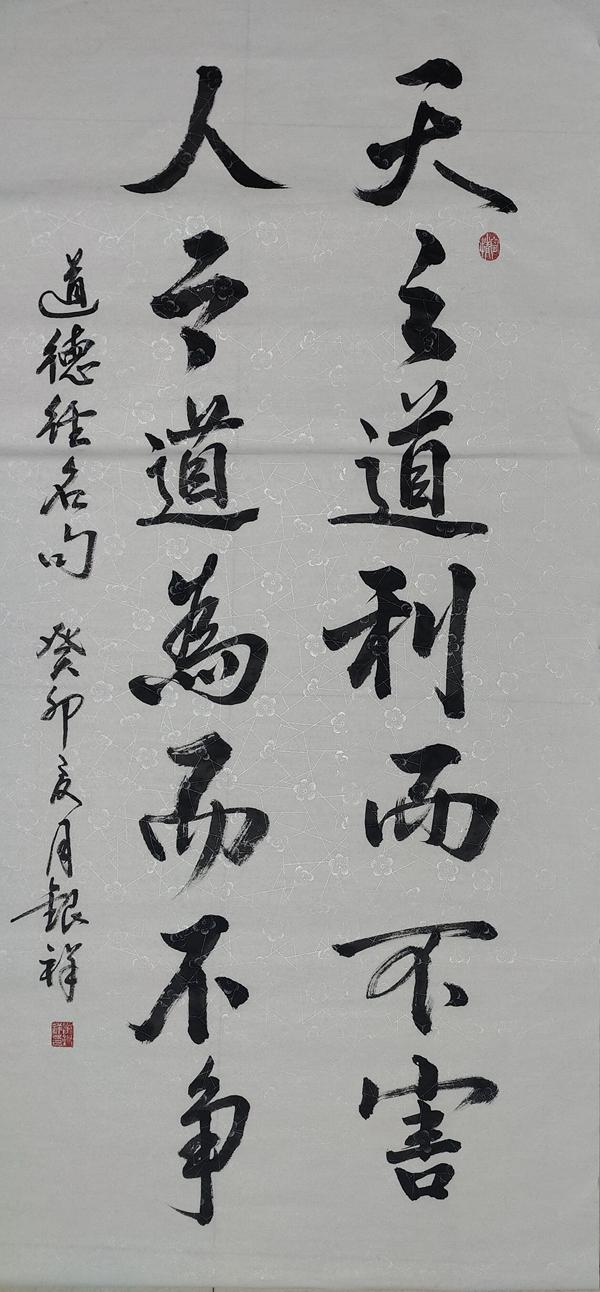 天之道利而不害
人之道為而不争
道德经名句 癸卯夏月银祥